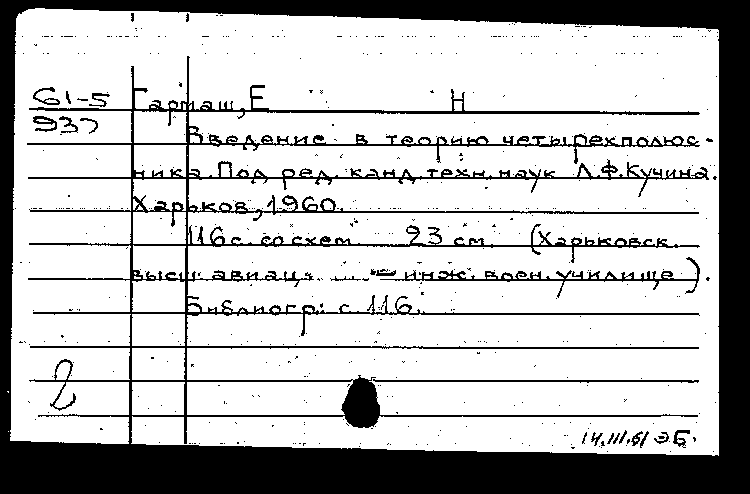 61-5 Гармаш, Е Н
937 Введение в теорию четырехполюс-
ника. Под ред. канд. техн. наук Л.Ф.Кучина.
Харьков, 1960.
116 с. со схем 23 см. (Харьковск.
высш. авиац. инж. воен. училище).
Библиогр: с. 116.
2
14.III.61 ЭБ.